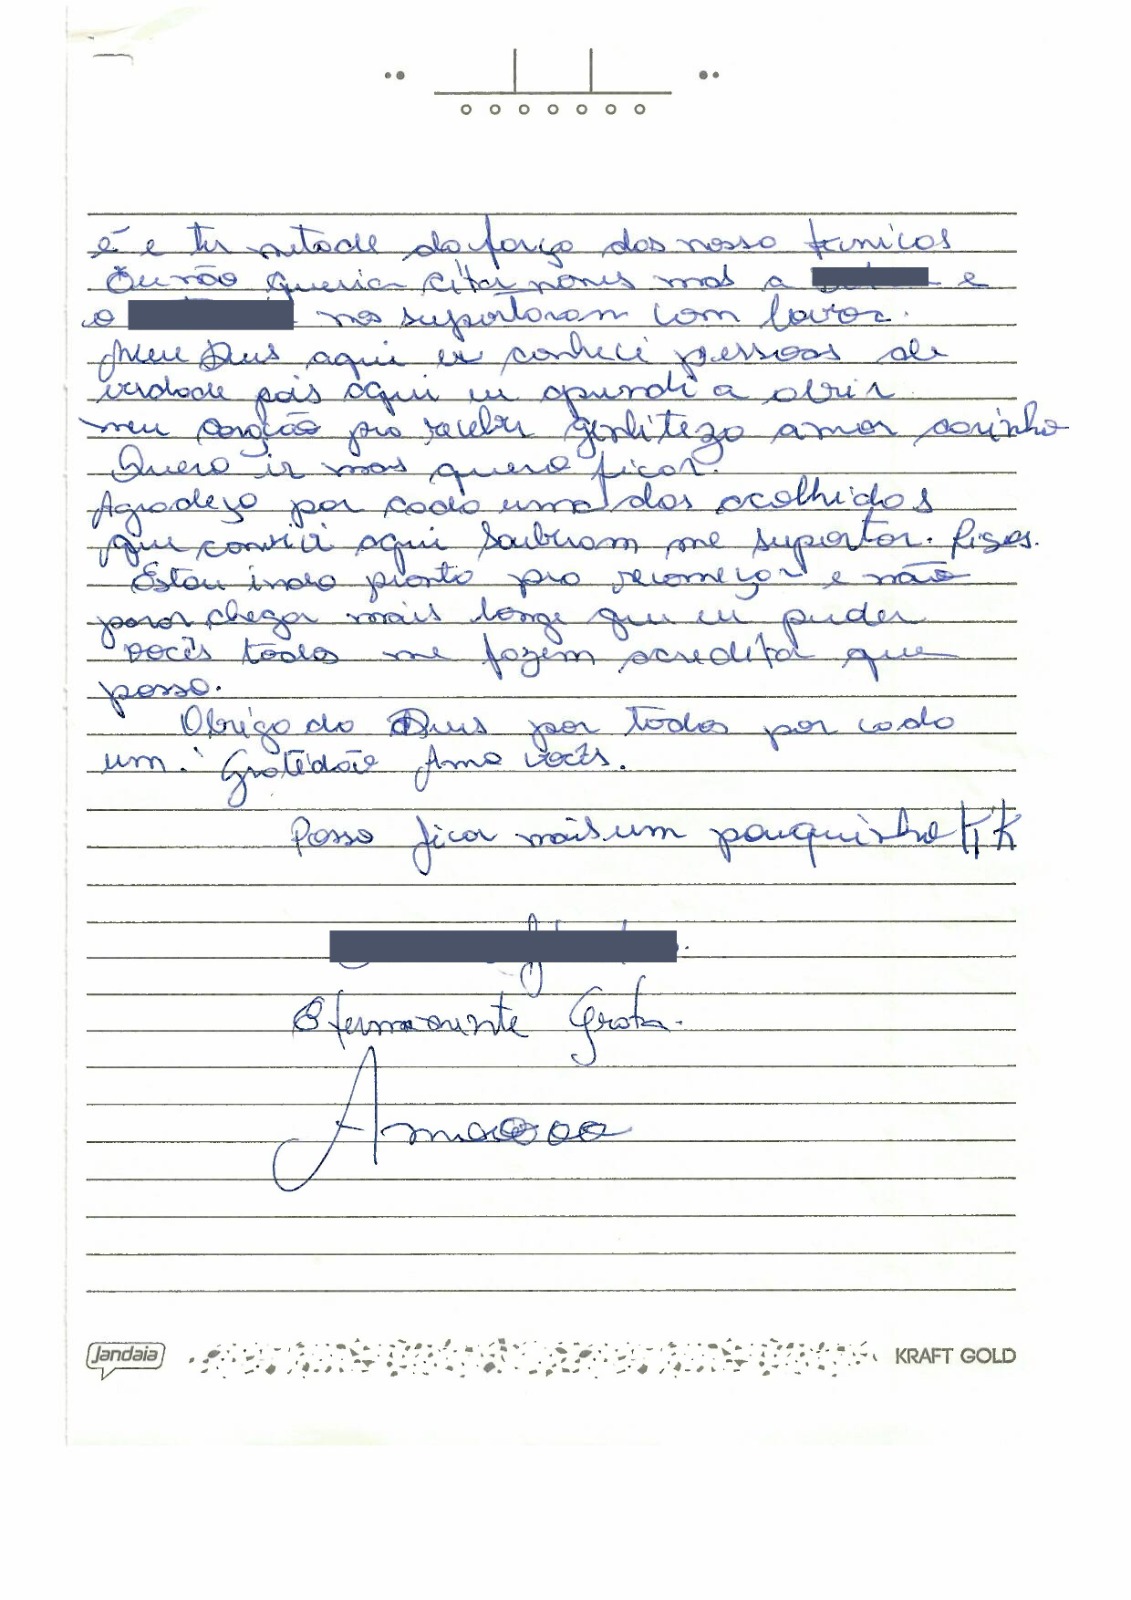 é e ter metade da força dos nosso tecnicos
Eu não queria citar nomes mas a e
o nos suportaram com louvor.
Meu Deus aqui eu conheci pessoas de
verdade pois aqui eu aprendi a abrir
meu coração pra receber gentileza amor carinho
Quero ir mas quero ficar.
Agradeço por cada uma dos acolhidos
que convivi aqui Souberam me suportar. Risos.
Estou indo pronto pra recomeçar e não
parar chegar mais longe que eu puder
vocês todos me fazem acreditar que
posso.
Obrigado Deus por todos por cada
um. Gratidão Amo vocês.
Posso ficar mais um pouquinho KK
Eternamente Grata.
Amoooo
Jandaia KRAFT GOLD